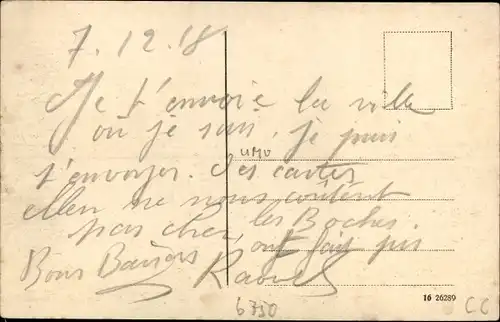 7.12.18
Je t'envoie la ville
où je suis. je puis
t'envoyer des cartes
elles ne nous coûtent
pas cher, les Boches.
ont fait pis
Bons Baisers
Raoul
UMV
6750
16 26289
CC